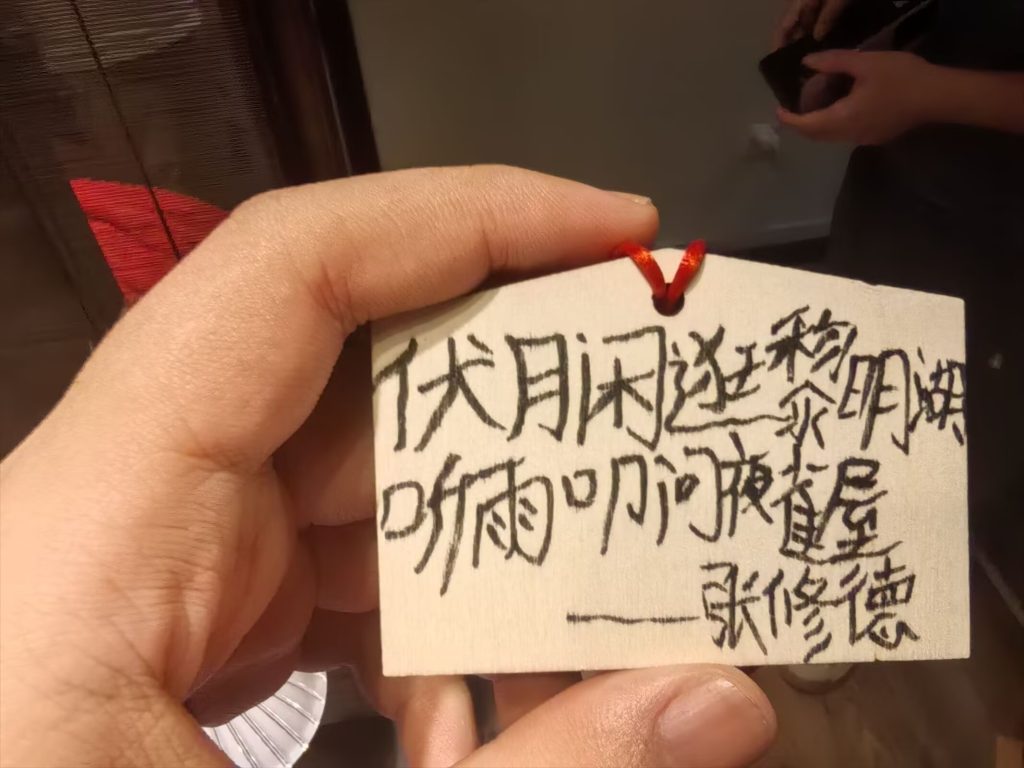 伏月闲逛黎明湖
听雨叨问夜雀屋
——张修德